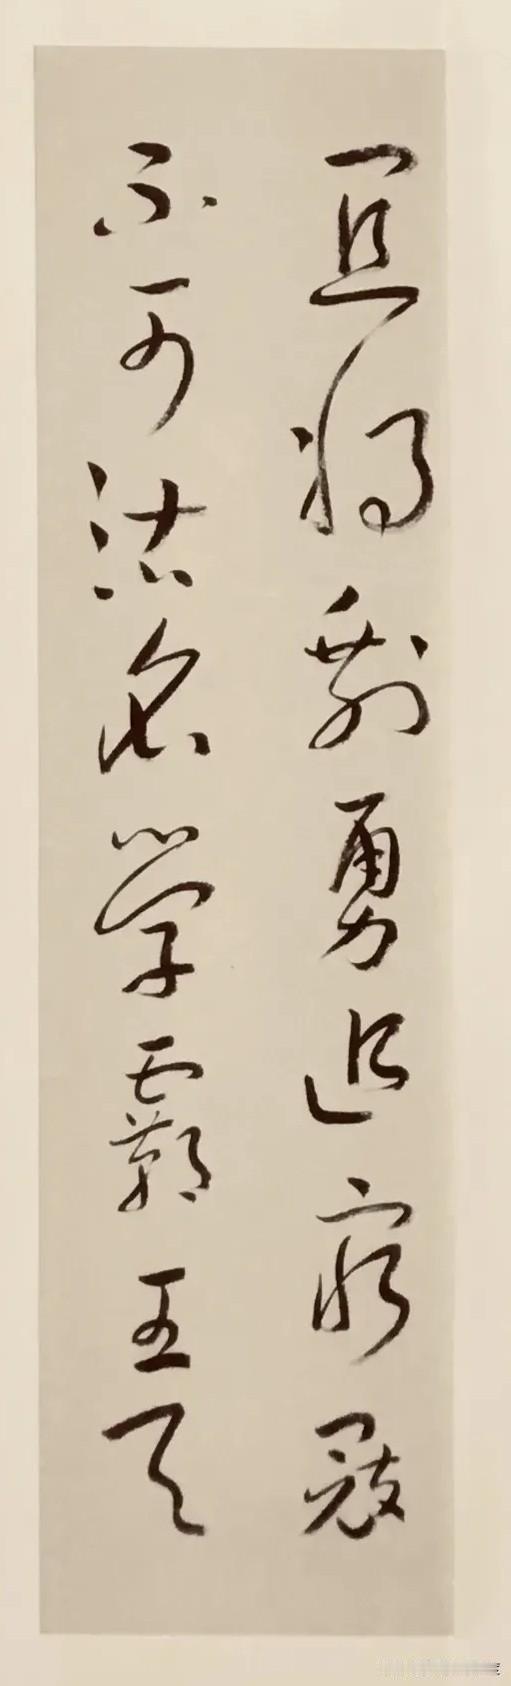 宜将剩勇追穷寇
不可沽名学霸王天